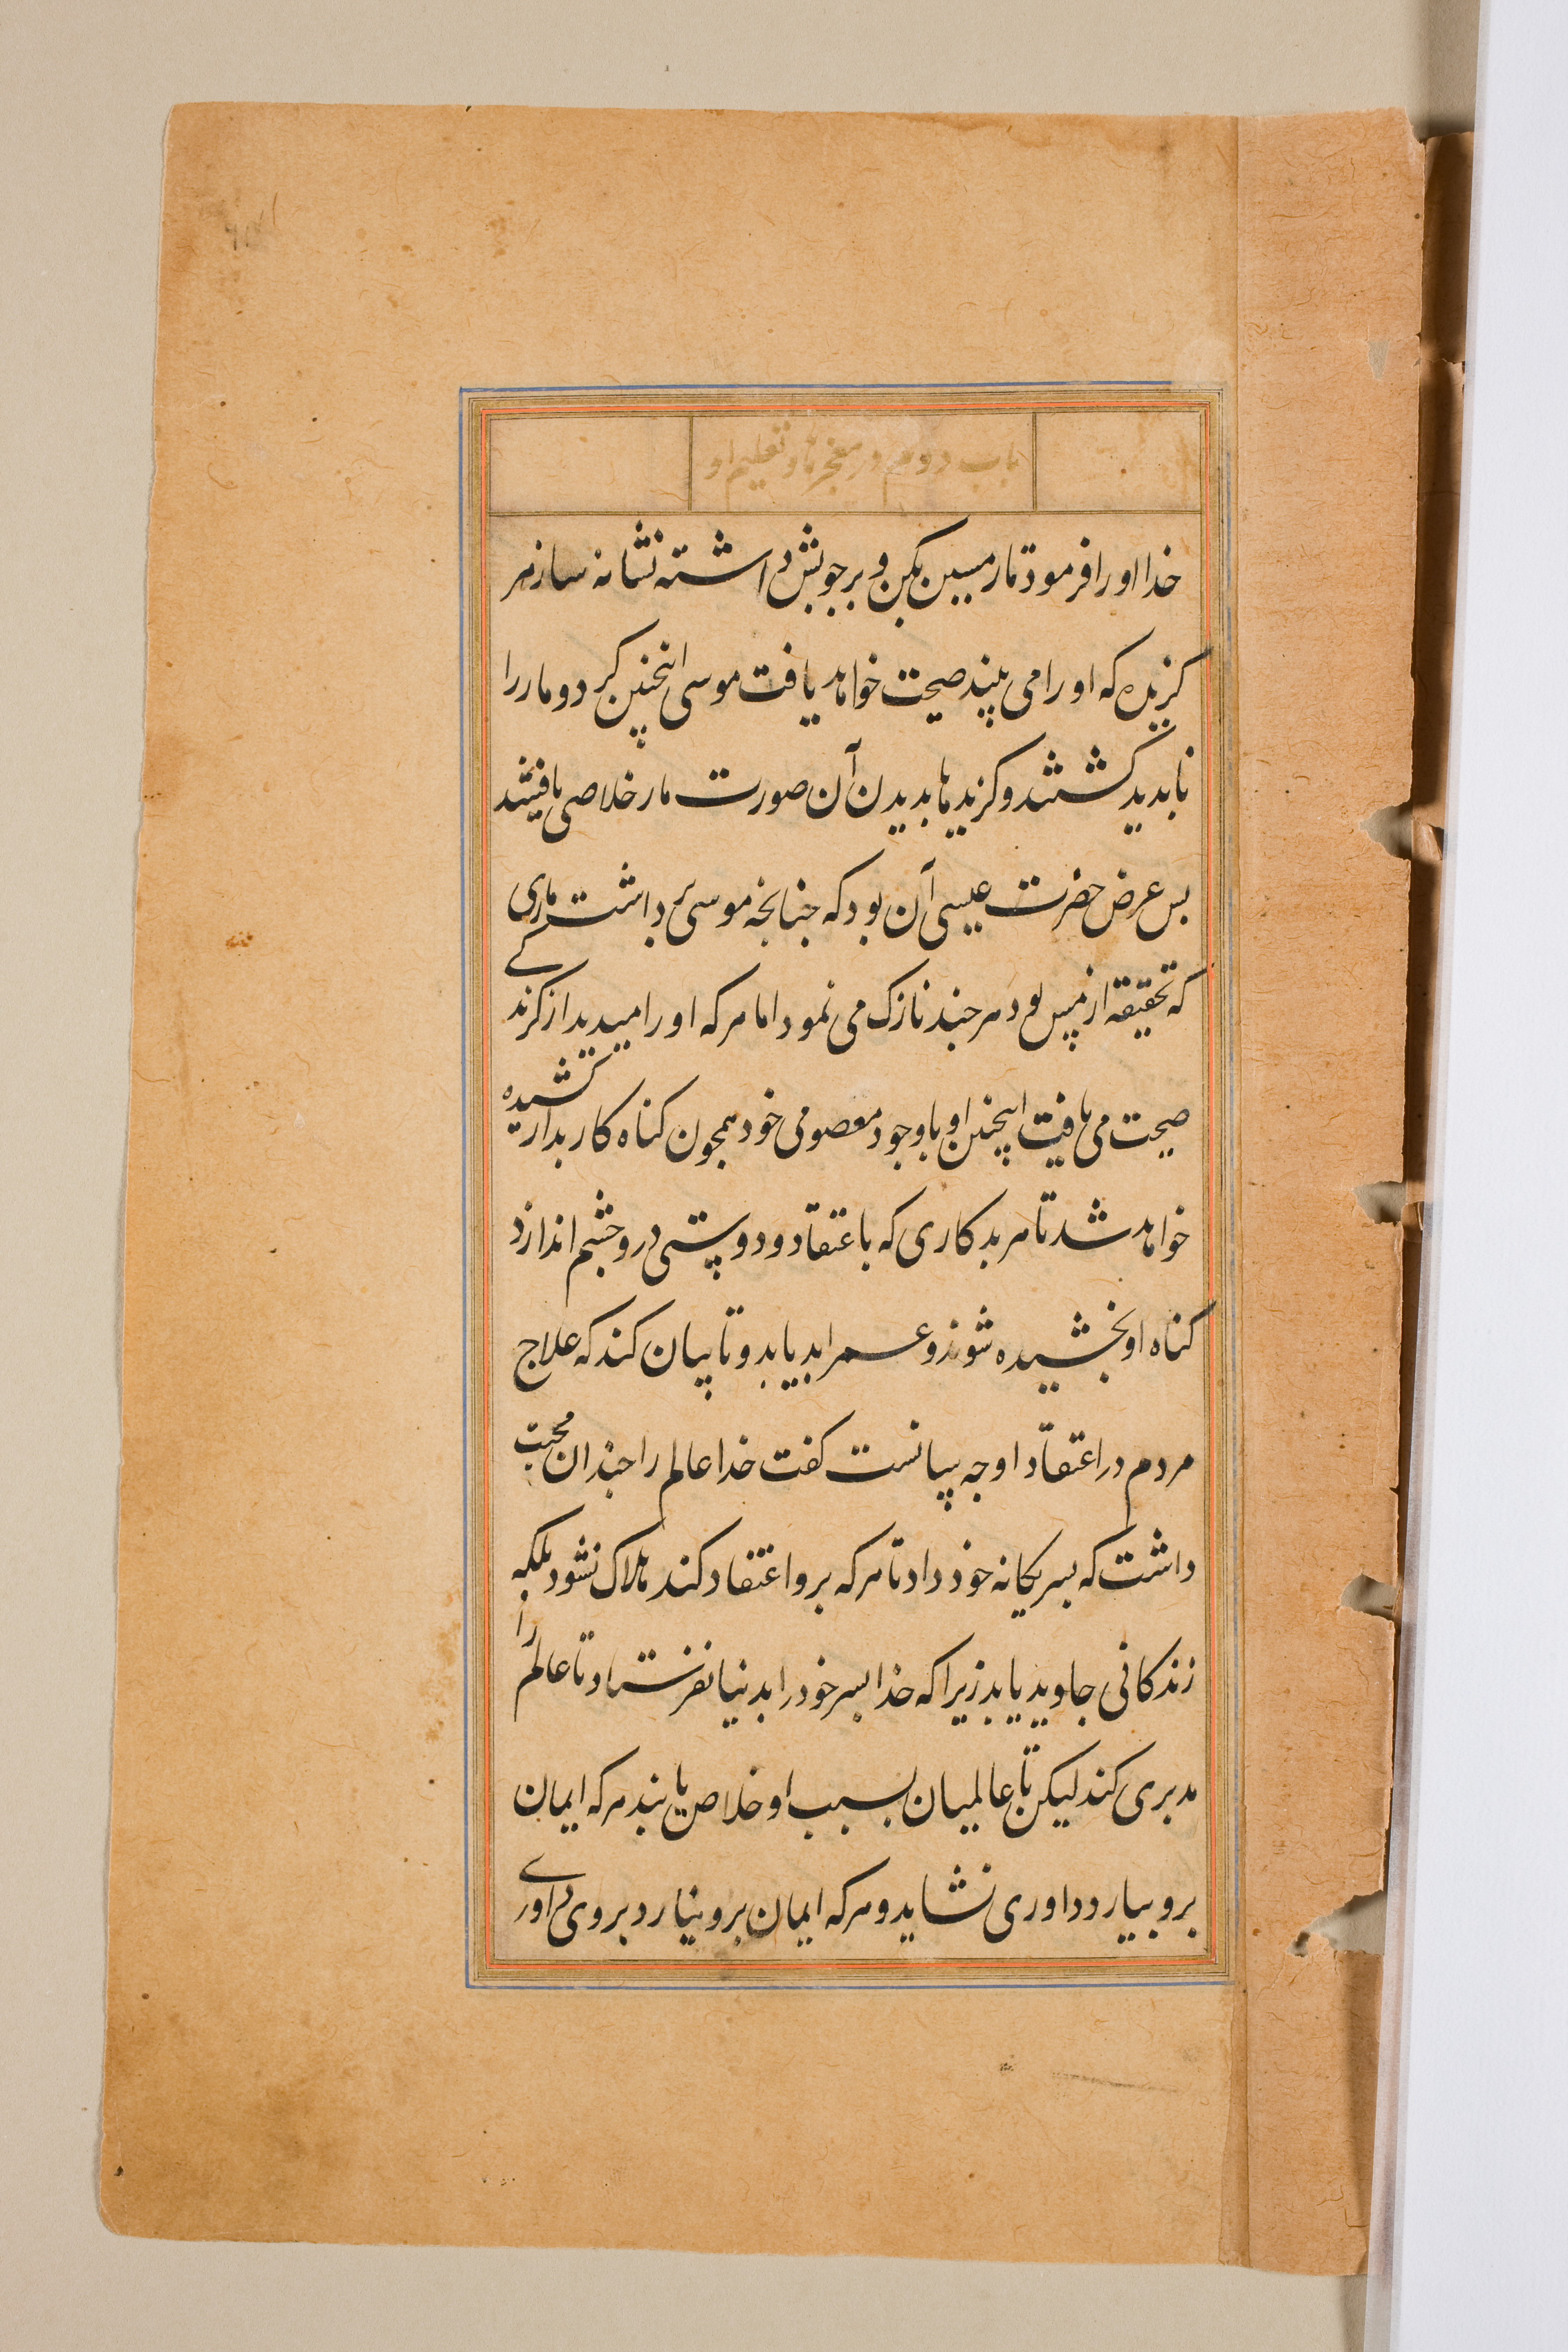 باب دوم در معجزها و تعلیم او
خدا او را فرمود تمار مسین بکن و بر چوبش داشته نشانه ساز هر
کزیده که او را می بیند صحت خواهد یافت موسی اینچنین کرد و مار را
نابدید کشتند و کزیدها بدیدن آن صورت مار خلاصی یافتند
بس عرض حضرت عیسی آن بود که چنانچه موسی برداشت ماری
که تحقیقة از مس بود هرچند نازک می نمود اما هر که او را میدید از کزندکی
صحت می یافت اینچنین او باوجود معصومی خود همچون کناه کار بدار کشیده
خواهد شد تا هر بدکاری که باعتقاد و دوستی در و چشم اندازد
کناه او بخشیده شوند و عمر ابد یابد و تا بیان کند که علاج
مردم در اعتقاد او چه سانست کفت خدا عالم را چندان محبت
داشت که بسر یکانه خود داد تا هر که برو اعتقاد کند هلاک نشود بلکه
زندکانی جاوید یابد زیرا که خدا بسر خود را بدنیا نفرستاد تا عالم را
مدبری کند لیکن تا عالمیان بسبب او خلاص یابند هر که ایمان
برو بیارد داوری نشاید و هر که ایمان برو نیارد بروی داوری